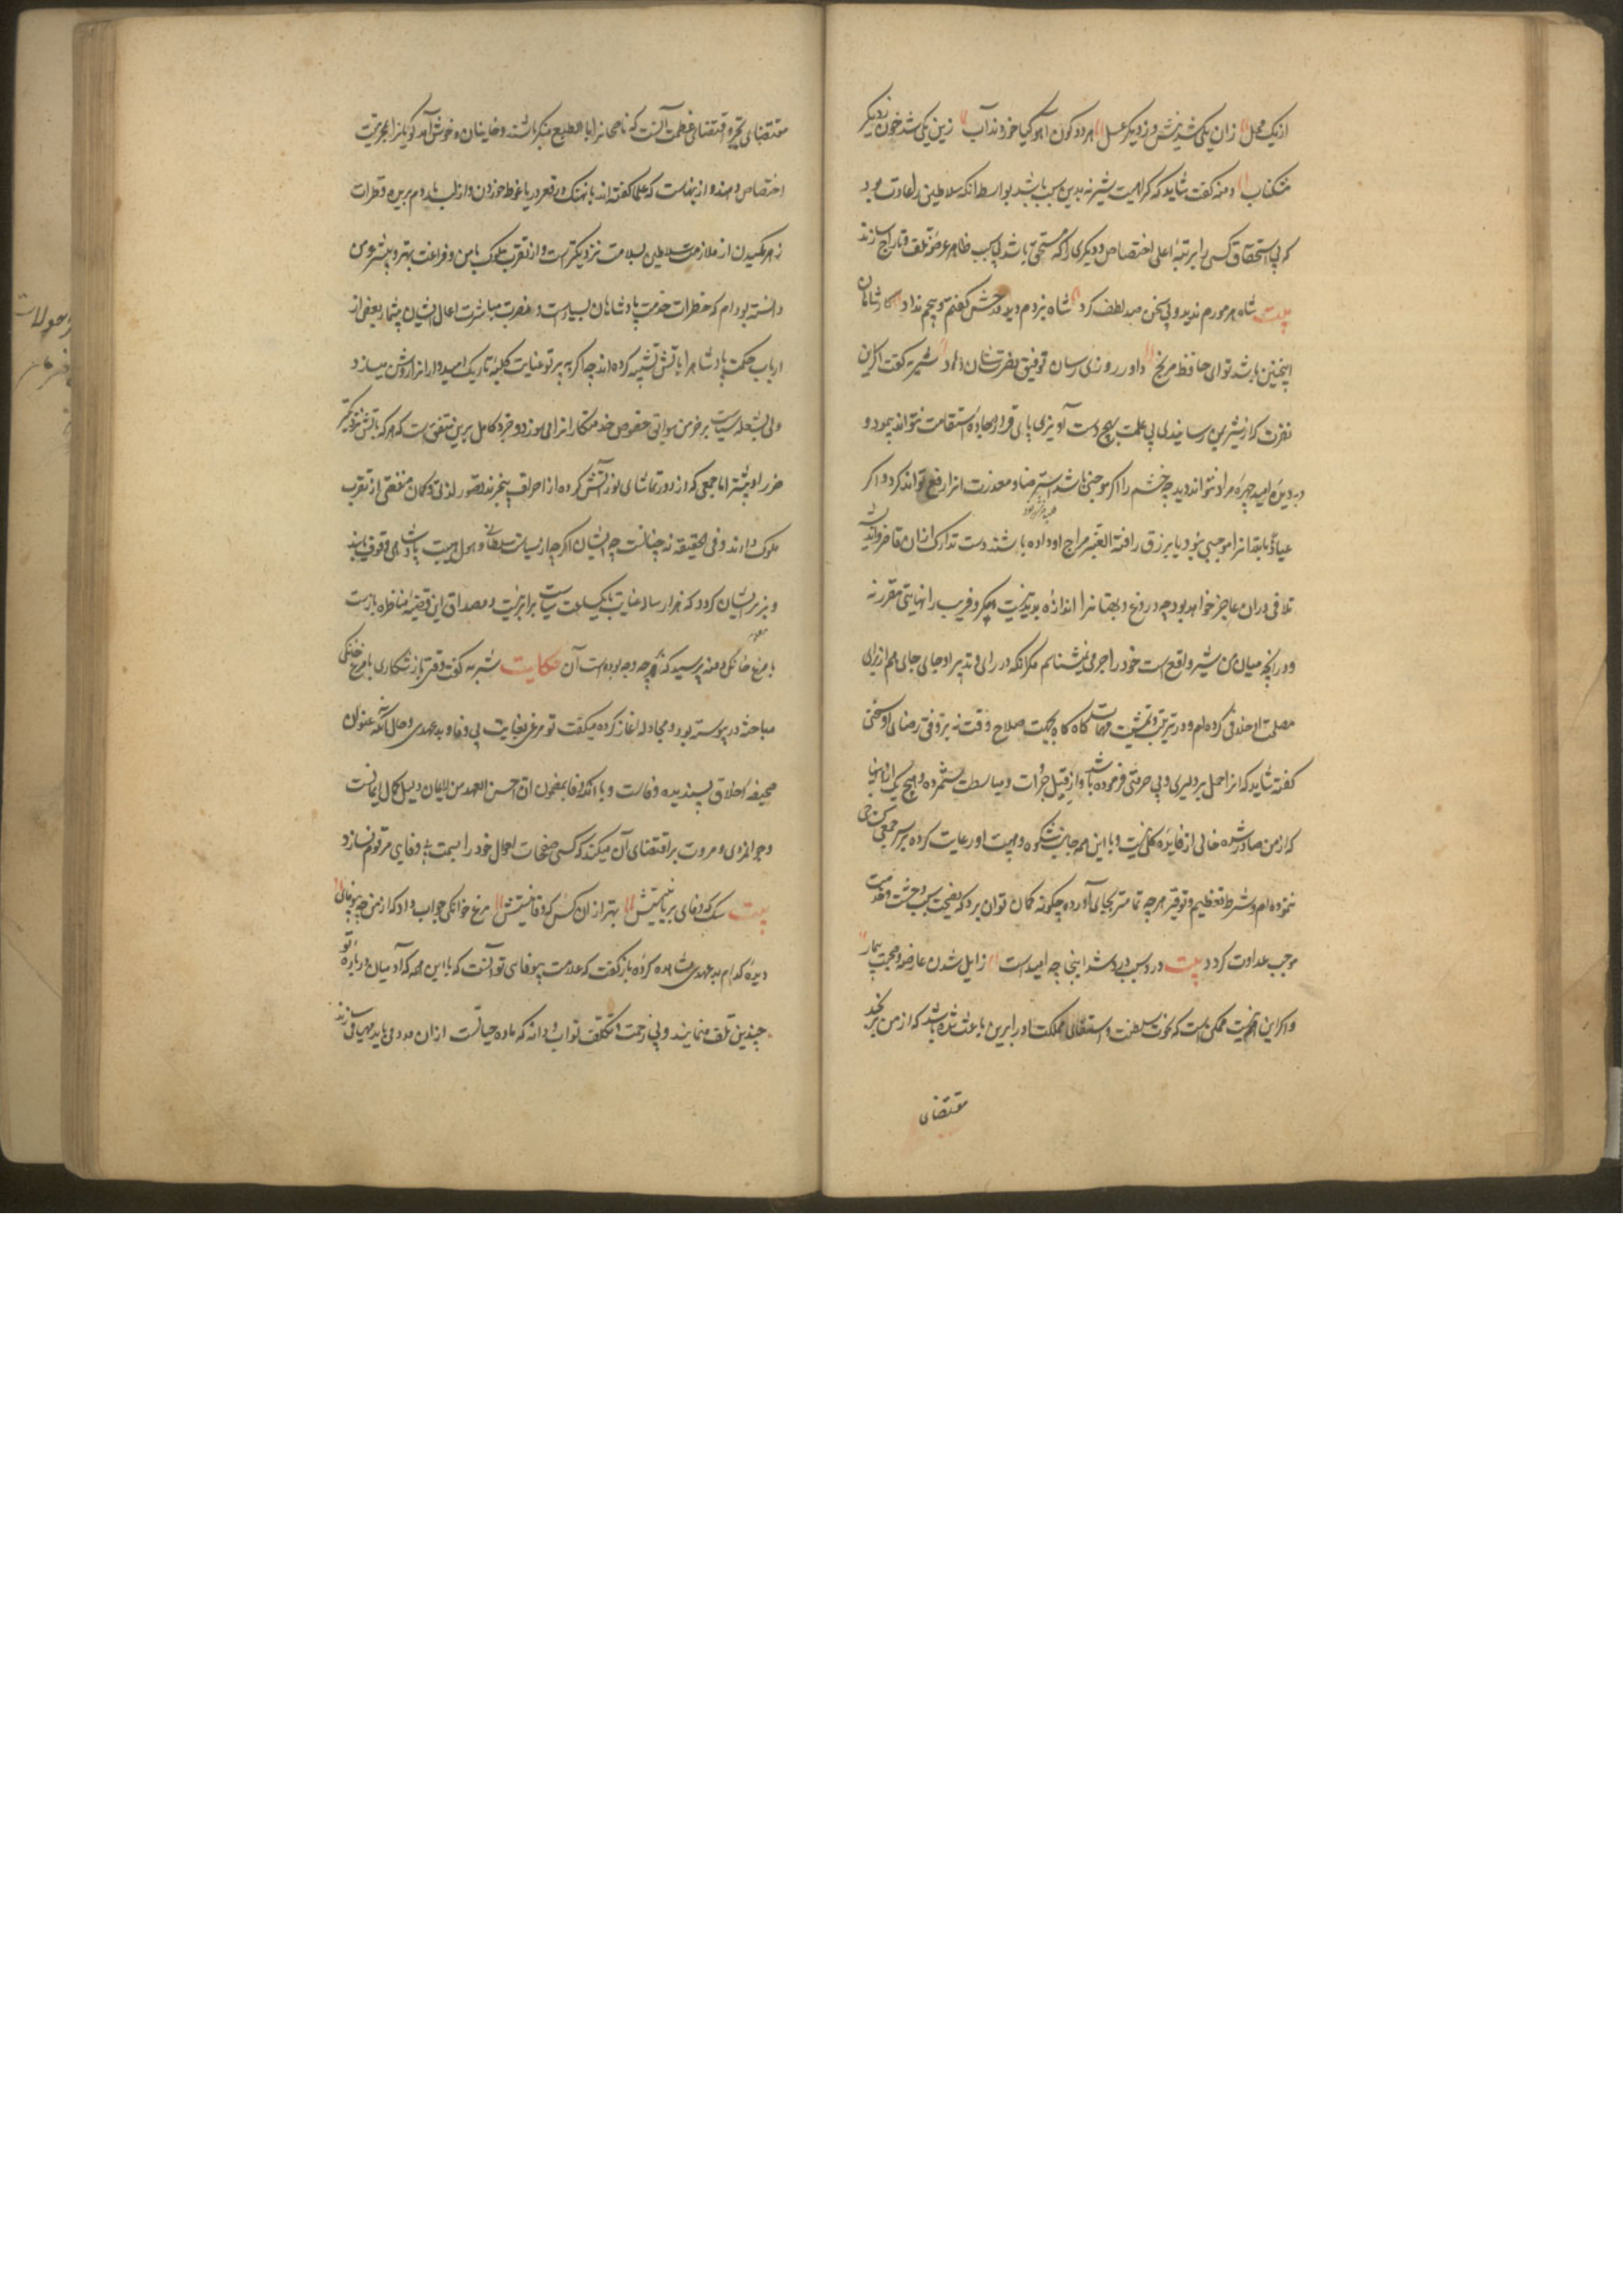 از یک محل زان یکی شد نیش و زدیکر عسل هر دو کون آهو کیا خوردند آب زین یکی شد خون زدیکر
مشکناب دمنه کفت شاید که کراهیت شیر نه بدین سبب باشد بواسطه آنکه سلاطین را عادت بود
که بی استحقاق کسی را برتبهٔ اعلی اختصاص و دیکری را که مستحق باشد بی سبب ظاهر عرضهٔ تلف و تاراج سازند
بیت شاه هرموزم ندید و بی سخن صد لطف کرد شاه یزدم دید و مدحش کفتم و هیچم نداد کار شاهان
اینچنین باشد تو ای حافظ مرنج داور روزی رسان توفیق و نصرتشان دهاد شنزبه کفت اکر این
نفرت که از شیر بمن رسانیدی بی علت بهیچ دست آویزی پای قرار بجادهٔ استقامت نتواند پیمود و
در دیدهٔ امید چهرهٔ مراد نتواند دید چه خشم را اکر موجبی باشد استرضا و معذرت آنرا رفع تواند کرد و اکر
عیاذا بالله آنرا موجبی نبود یا بزرق و افترا تغیر مزاج او داده باشند دست تدارک از آن قاصر و اندیشه
تلافی در آن عاجز خواهد بود چه دروغ و بهتانرا اندازه پدید نیست و مکر و فریب را نهایتی مقرر نه
و در آنچه میان من و شیر واقع است خود را جرمی نمیشناسم مکر آنکه در رای و تدبیر او جای جای هم از برای
مصلحت او خلافی کرده ام و در ترتیب و تمشیت مهمات کاه کاه بجهت صلاح وقت نه بر وفق رضای او سخنی
کفته شاید که آنرا حمل بر دلیری و بی حرمتی فرموده باشد و از قبیل جرأت و مباسطت شمرده و هیچ یک از اینها
که از من صادر شده خالی از فایدهٔ کلی نیست و با این همه جانب شکوه و هیبت او رعایت کرده بر سر جمعی کستاخی
ننموده ام و شرط تعظیم و توقیر هر چه تمامتر بجای آورده چکونه کمان توان برد که نصیحت سبب وحشت و خدمت
موجب عداوت کردد بیت دارو سبب درد شد اینجا چه امیدست زایل شدن عارضه و صحت بیمار
و اکر این هم نیست ممکن است که نخوت سلطنت و استغنای مملکت او را برین باعث شده باشد که از من برنجد
مقتضای
مقتضای تجبر و اقتضای عظمت آنست که ناصحانرا بالطبع منکر باشند و خاینان و خوش آمد کویانرا بمحرمیت
اختصاص دهند و از اینجاست که علما کفته اند با نهنک در قعر دریا غوطه خوردن و از لب مار دم بریده قطرات
زهر مکیدن از ملازمت سلاطین بسلامت نزدیکترست و از تقرب ملوک بامن و فراغت بهتر و بیشتر و من
دانسته بودم که خطرات خدمت پادشاهان بسیارست و مضرت مباشرت اعمال ایشان بیشمار بعضی از
ارباب حکمت پادشاهرا بآتش تشبیه کرده اند چه اکر چه پرتو عنایت کلبهٔ تاریک امیدوارانرا روشن میسازد
ولی بشعلهٔ سیاست بر خرمن سوابق حقوق خدمتکارانرا می سوزد و خرد کامل برین متفق است که هر که بآتش نزدیکتر
ضرر او بیشتر اما جمعی که از دور تماشای نور آتش کرده از احراق بیخبرند تصور لذتی و کمان منفعتی از تقرب
ملوک دارند و فی الحقیقه نه چنانست چه ایشان اکر چه از سیاست سلطانی و هول و هیبت پادشاهی وقوف یابند
و بر ایشان کردد که هزار ساله عنایت با یکساعت سیاست برابر نیست و مصداق این قضیه مناظرهٔ بازست
با مرغ خانکی دمنه پرسید که چه وجه بوده است آن حکایت شنزبه کفت وقتی باز شکاری با مرغ خانکی
مباحثه در پیوسته بود و مجادله آغاز کرده میکفت تو مرغی بغایت بی وفا و بدعهدی و حال آنکه عنوان
صحیفهٔ اخلاق پسندیده وفاست و با آنکه وفا بمضمون ان حسن العهد من الایمان دلیل کمال ایمانست
و جوانمردی و مروت بر اقتضای آن میکند که کسی صفحات احوال خود را بسمت بی وفایی مرقوم نسازد
بیت سک که وفای بر نیتیش بهتر از آن کس که وفا نیستش مرغ خوانکی جواب داد که از من چه بیوفائی
دیدهٔ کدام بدعهدی مشاهده کردهٔ باز کفت که علامت بیوفایی تو آنست که با این همه که آدمیان دربارهٔ تو
چندین تلطف مینمایند و بی زحمت و تکلف تو آب و دانه که مادهٔ حیاتست از آن مدد می یابد مهیا می سازند